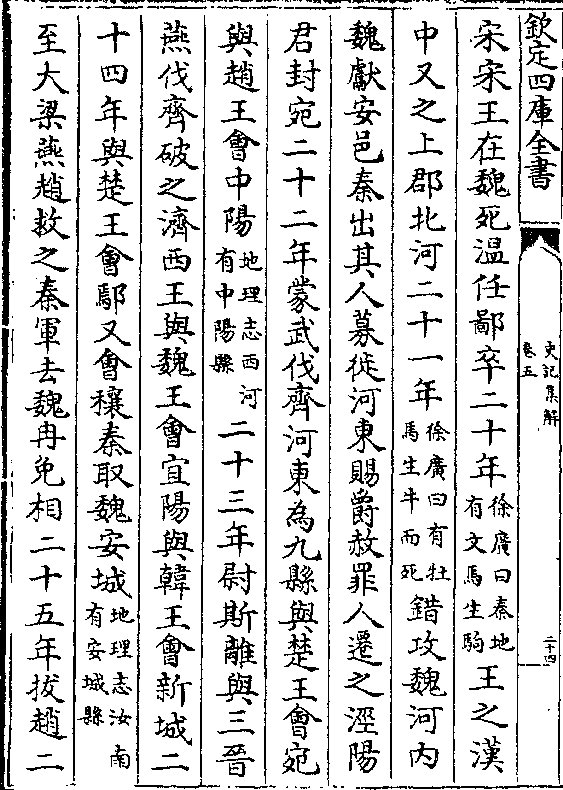 欽定四庫全書
史記集解
卷五
二十四
宋宋王在魏死溫任鄙卒二十年徐廣曰秦地有文馬生駒王之漢
中又之上郡北河二十一年徐廣曰有牡馬生牛而死錯攻魏河內
魏獻安邑秦出其人募徙河東賜爵赦罪人遷之涇陽
君封宛二十二年蒙武伐齊河東為九縣與楚王會宛
與趙王會中陽地理志西河有中陽縣二十三年尉斯離與三晉
燕伐齊破之濟西王與魏王會宜陽與韓王會新城二
十四年與楚王會鄢又會穰秦取魏安城地理志汝南有安城縣
至大梁燕趙救之秦軍去魏冉免相二十五年拔趙二